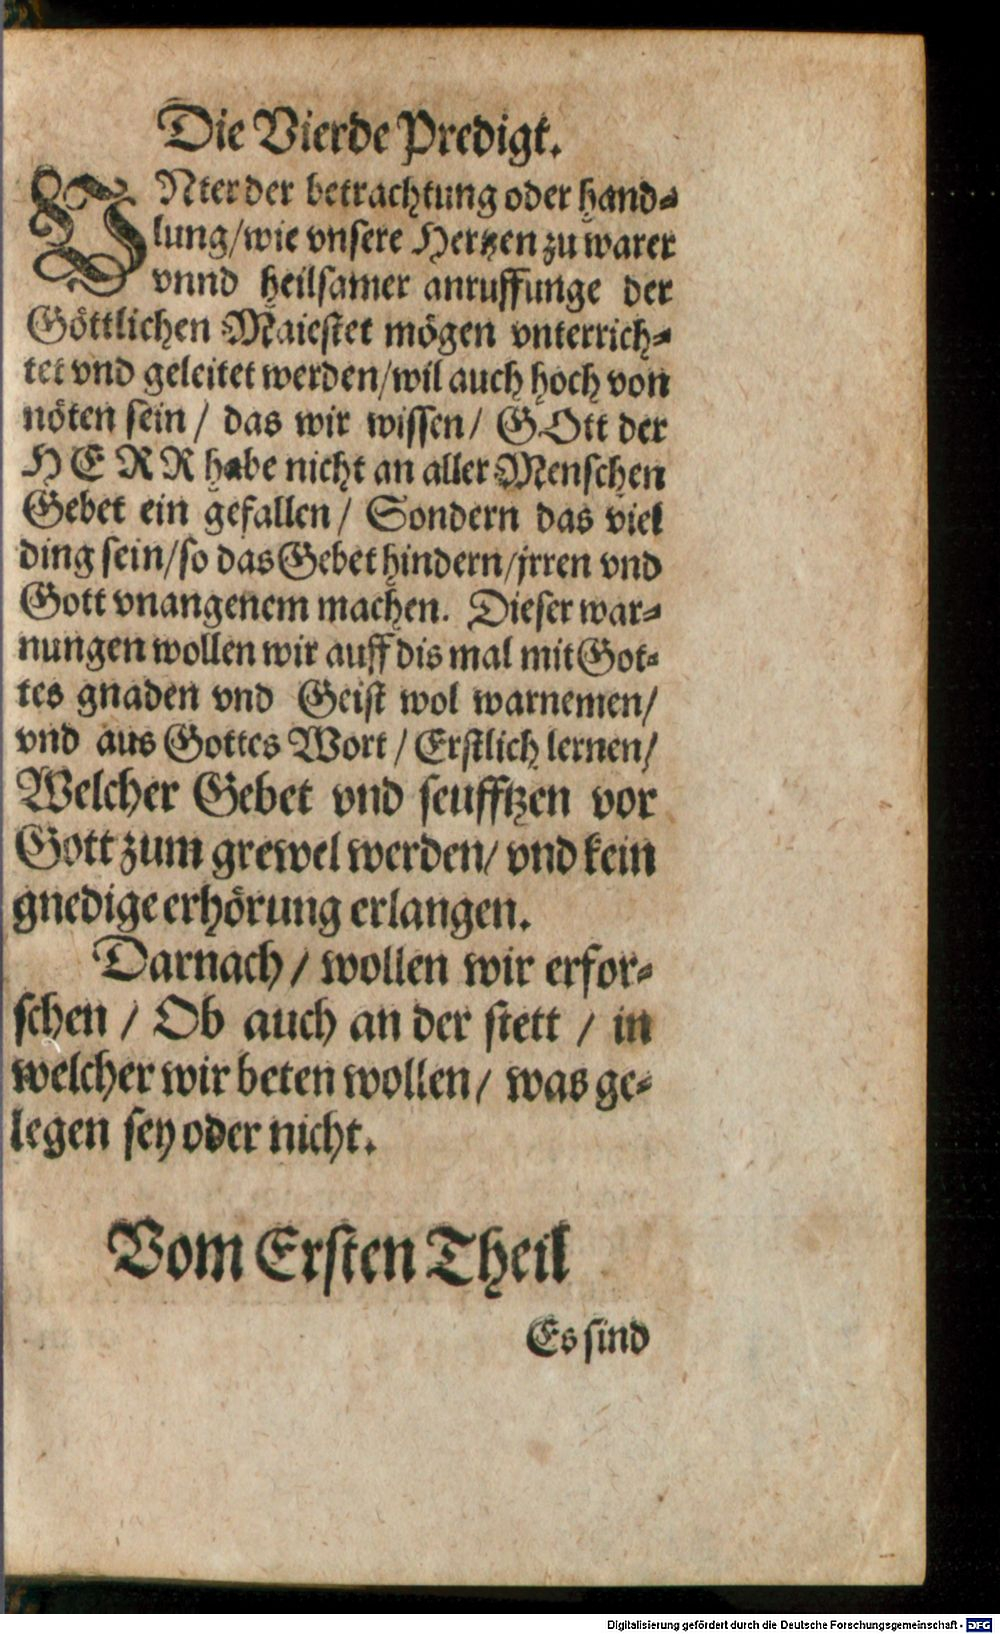 Die Vierde Predigt.
VNter der betrachtung oder hand⸗
lung/wie vnsere Hertzen zu warer
vnnd heilsamer anruffunge der
Göttlichen Maiestet mögen vnterrich⸗
tet vnd geleitet werden/wil auch hoch von
nöten sein / das wir wissen / GOtt der
HERR habe nicht an aller Menschen
Gebet ein gefallen / Sondern das viel
ding sein/so das Gebet hindern/jrren vnd
Gott vnangenem machen. Dieser war⸗
nungen wollen wir auff dis mal mit Got⸗
tes gnaden vnd Geist wol warnemen/
vnd aus Gottes Wort / Erstlich lernen/
Welcher Gebet vnd seufftzen vor
Gott zum grewel werden/ vnd kein
gnedige erhörung erlangen.
Darnach / wollen wir erfor⸗
schen / Ob auch an der stett / in
welcher wir beten wollen / was ge⸗
legen sey oder nicht.
Vom Ersten Theil
Es sind
Digitalisierung gefördert durch die Deutsche Forschungsgemeinschaft - DFG